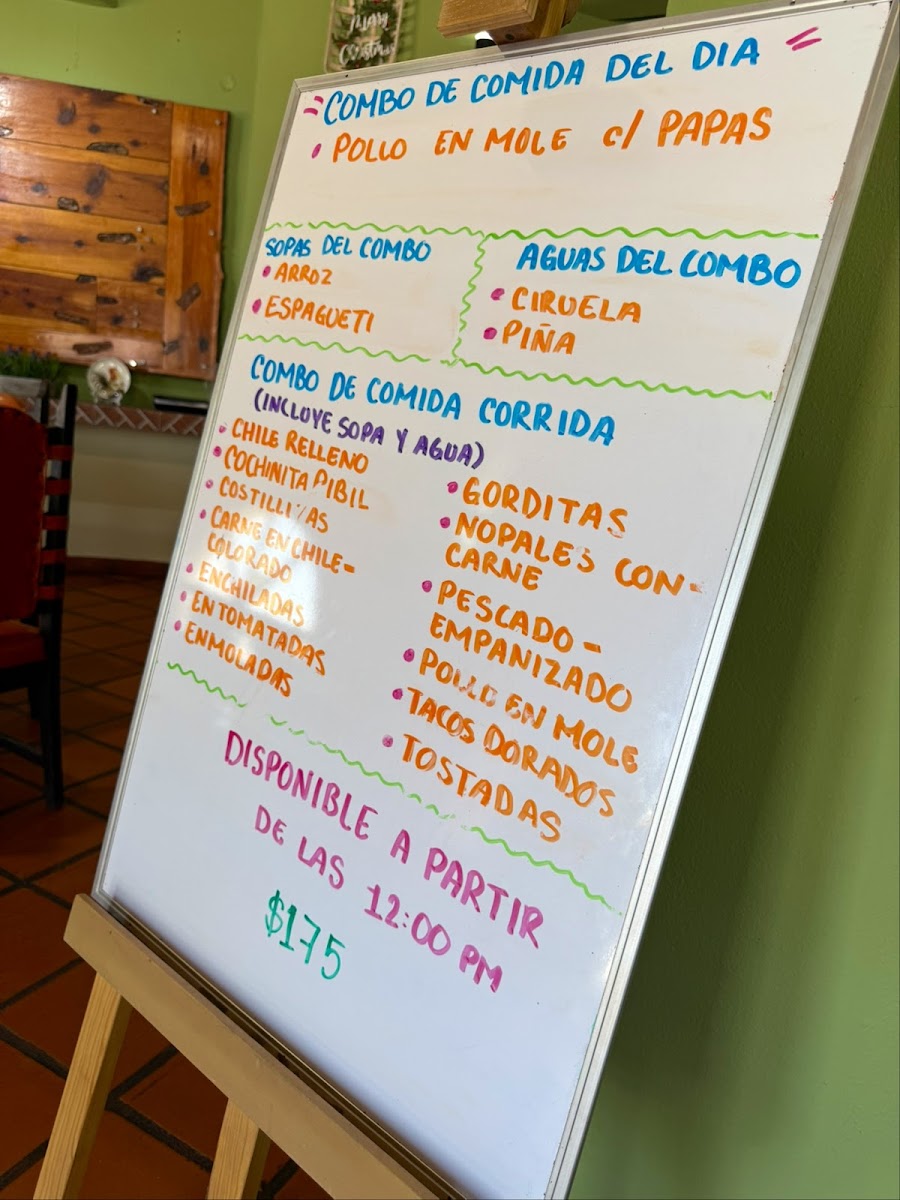 Merry
Christmas
COMBO DE COMIDA DEL DIA
• POLLO EN MOLE c/ PAPAS
SOPAS DEL COMBO
• ARROZ
• ESPAGUETI
AGUAS DEL COMBO
• CIRUELA
• PIÑA
COMBO DE COMIDA CORRIDA
(INCLUYE SOPA Y AGUA)
• CHILE RELLENO
• COCHINITA PIBIL
• COSTILLITAS
• CARNE EN CHILE-
COLORADO
• ENCHILADAS
• ENTOMATADAS
• ENMOLADAS
• GORDITAS
• NOPALES CON-
CARNE
• PESCADO-
EMPANIZADO
• POLLO EN MOLE
• TACOS DORADOS
• TOSTADAS
DISPONIBLE A PARTIR
DE LAS 12:00 PM
$175